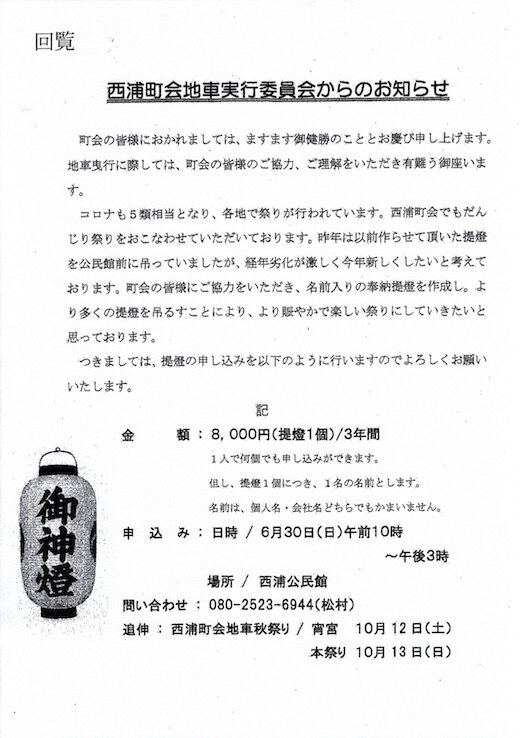 回覧
西浦町会地車実行委員会からのお知らせ
町会の皆様におかれましては、ますます御健勝のこととお慶び申し上げます。
地車曳行に際しては、町会の皆様のご協力、ご理解をいただき有難う御座いま
す。
コロナも５類相当となり、各地で祭りが行われています。西浦町会でもだん
じり祭りをおこなわせていただいております。昨年は以前作らせて頂いた提燈
を公民館前に吊っていましたが、経年劣化が激しく今年新しくしたいと考えて
おります。町会の皆様にご協力をいただき、名前入りの奉納提燈を作成し。よ
り多くの提燈を吊るすことにより、より賑やかで楽しい祭りにしていきたいと
思っております。
つきましては、提燈の申し込みを以下のように行いますのでよろしくお願い
いたします。
記
金　　額 ： 8,000円(提燈1個)/3年間
１人で何個でも申し込みができます。
但し、提燈１個につき、１名の名前とします。
名前は、個人名・会社名どちらでもかまいません。
申 込 み ： 日時 / 6月30日(日)午前10時
～午後3時
場所 / 西浦公民館
問い合わせ ： 080-2523-6944(松村)
追伸 ： 西浦町会地車秋祭り / 宵宮　10月12日(土)
本祭り 10月13日(日)
御神燈